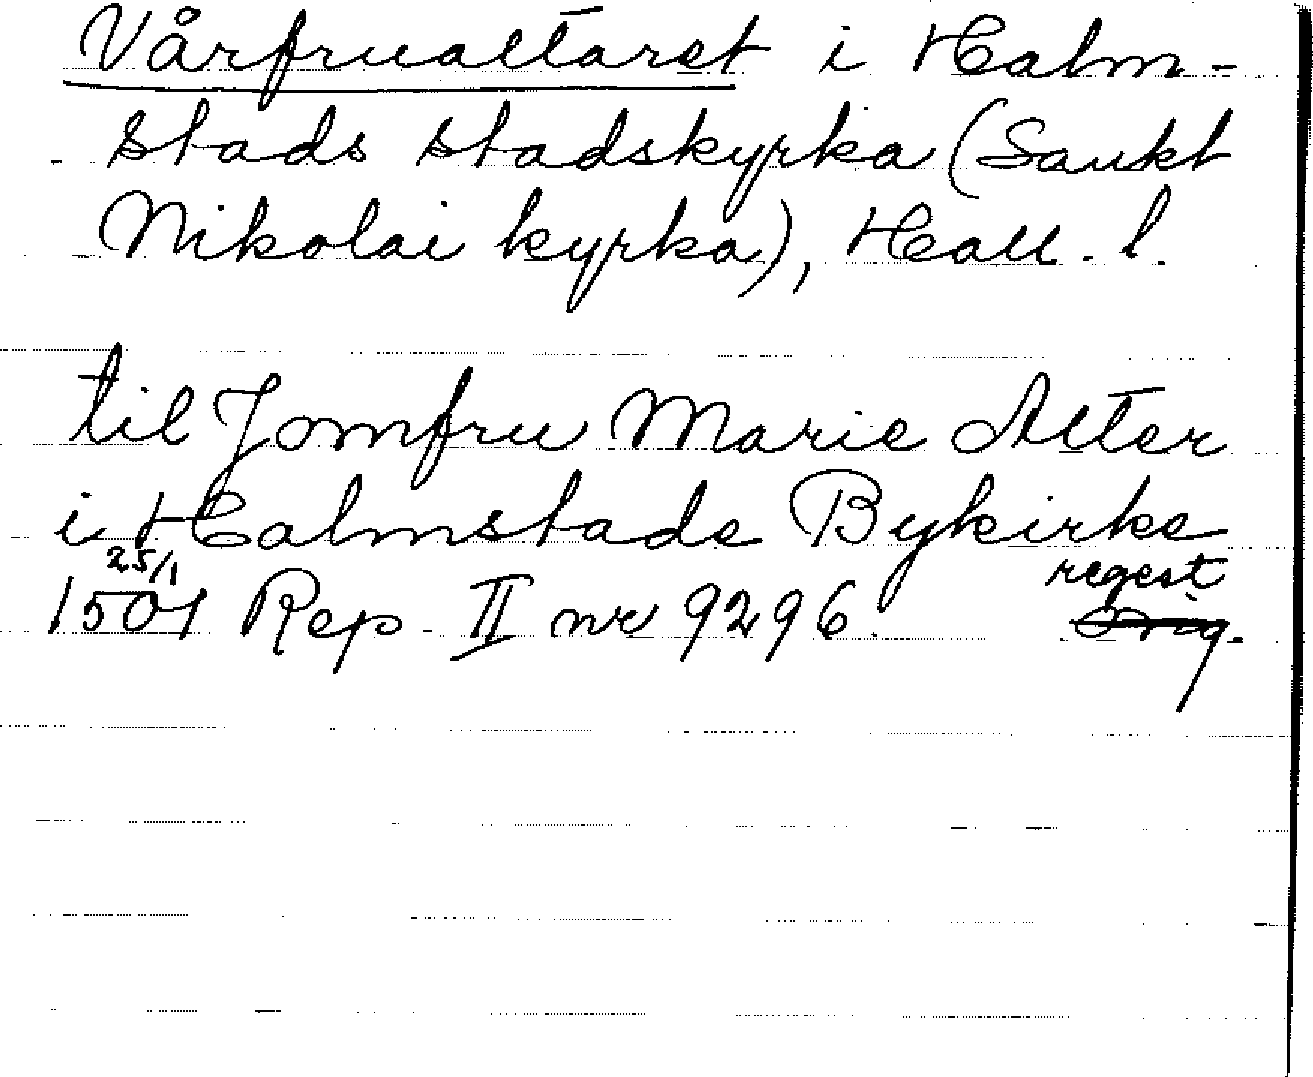 Vårfrualtaret i Halm-
stads stadskyrka (Sankt
Nikolai kyrka), Hall. l.
til Jomfru Marie Alter
i Halmstads Bykirke
25/1 regest
1501 Rep. II nr 9296. Orig.